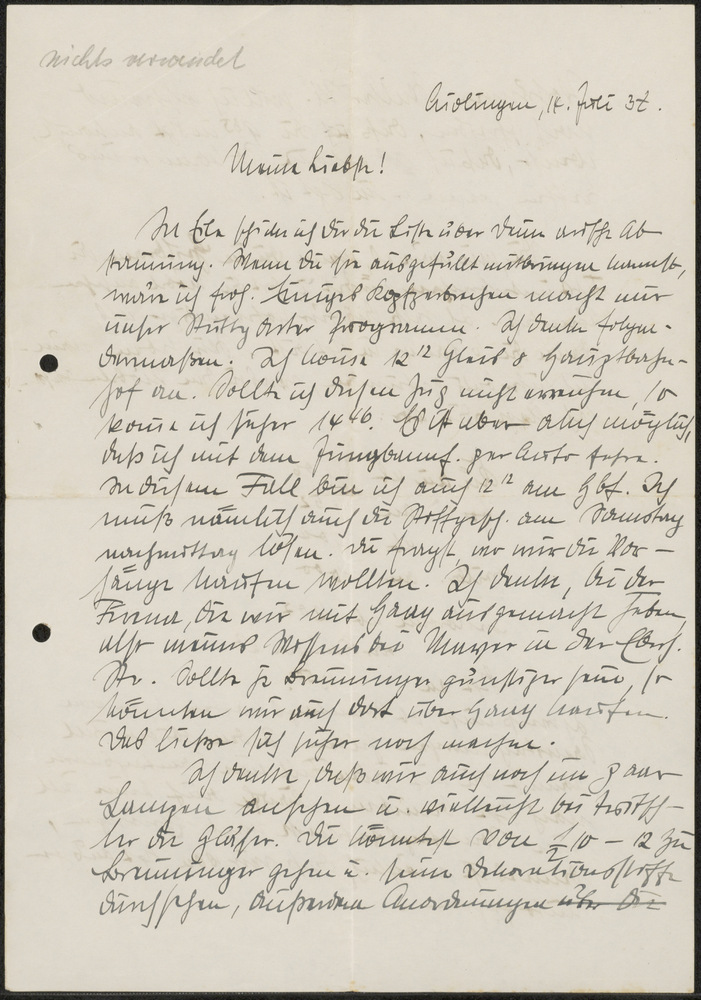 nichts verwendet
Aidlingen, 14. Juli 37.
Meine Liebste!
In Eile schicke ich Dir die Liste über Deine arische Ab-
stammung. Wenn Du sie ausgefüllt mitbringen kannst,
wäre ich froh. Einiges Kopfzerbrechen macht mir
unser Stuttgarter Programm. Ich denke folgen-
dermaßen. Ich komme 12 12 Gleis 8 Hauptbahn-
hof an. Sollte ich diesen Zug nicht erreichen, so
komme ich sicher 14 46. Es ist aber auch möglich,
daß ich mit dem Jungbannf. per Auto fahre.
In diesem Fall bin ich auch 12 12 am Hbf. Ich
muß nämlich auch die Stoffgesch. am Samstag
nachmittag lösen. Du fragst, wo wir die Vor-
hänge kaufen wollten. Ich denke, bei der
Firma, die wir mit Hang ausgemacht haben,
also meines Wissens bei Mayer in der Eberh.
Str. Sollte je Breuninger günstiger sein, so
könnten wir auch dort über Hang kaufen.
Das ließe sich sicher noch machen.
Ich denke, daß wir auch noch ein paar
Lampen ansehen u. vielleicht bei
die Gläser. Du könntest von 1/2 10 - 12 zu
Breuninger gehen u. seine Dekorationsstoffe
durchsehen, außerdem Anordnungen über die